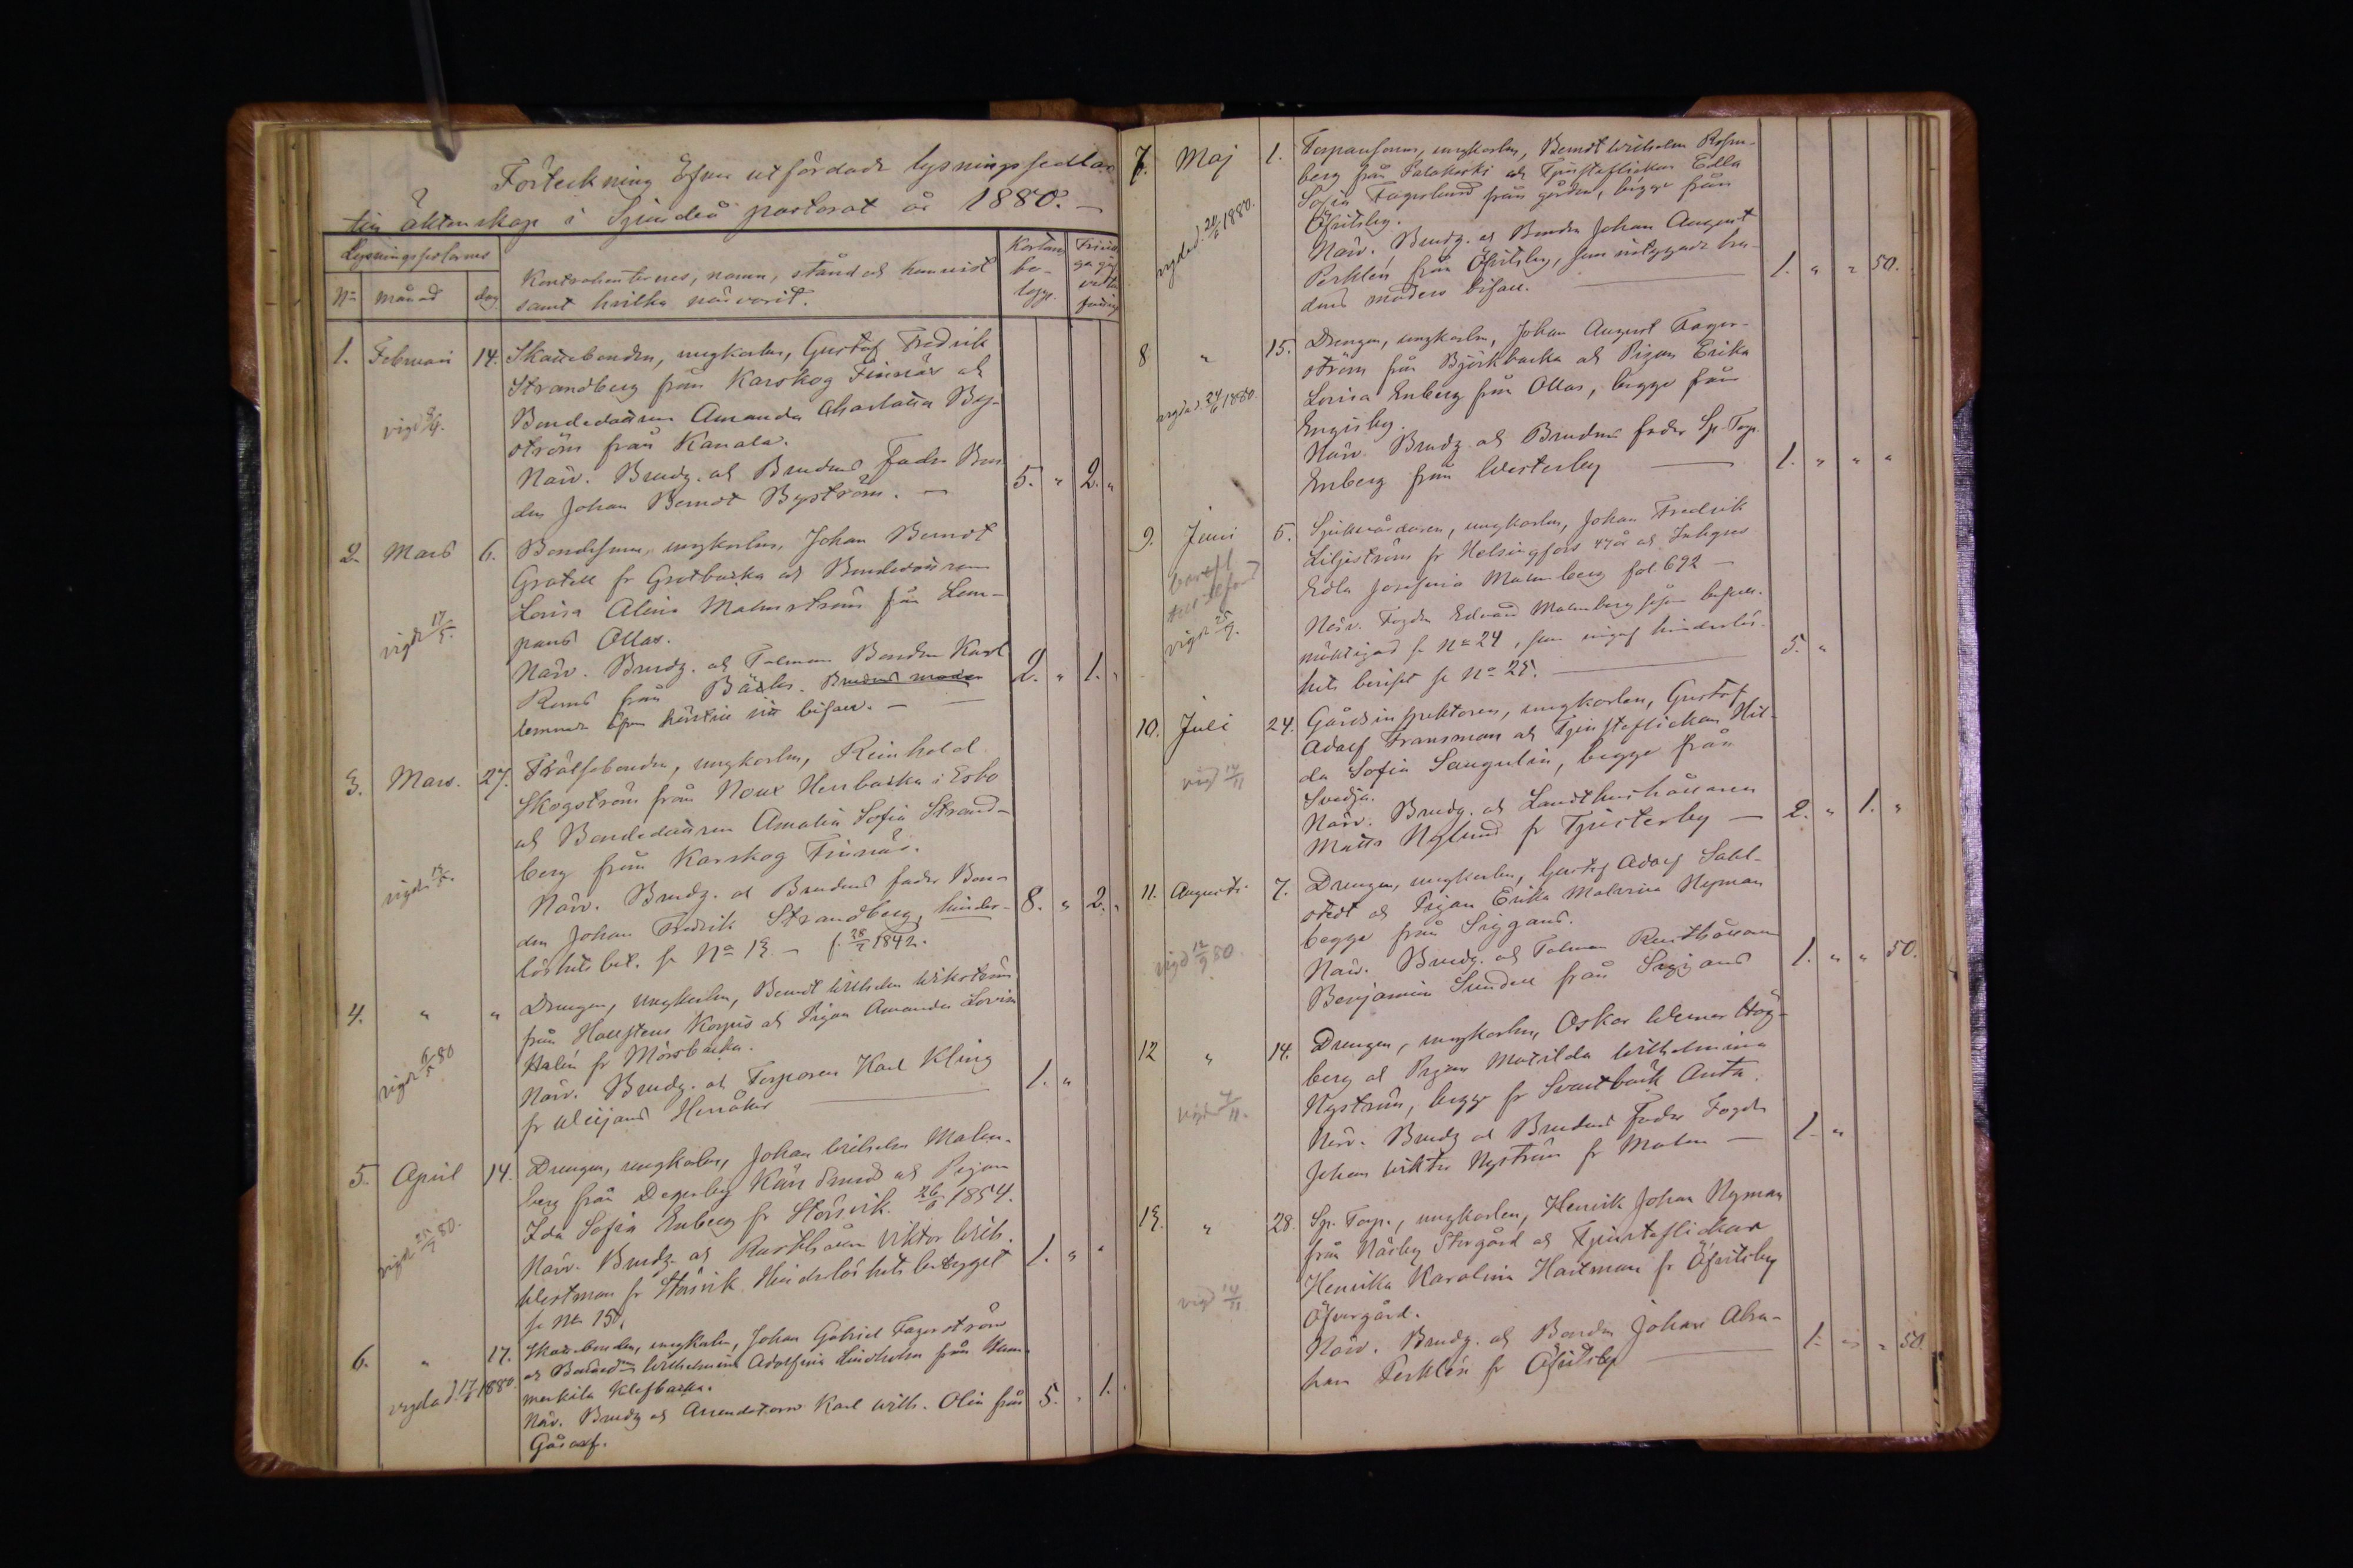 Förteckning öfver utfärdade lysningssedlar
till äktenskap i Sjundeå pastorat år 1880. —
Lysningssedlarnes
No månad dag
Kontrahenternes, namn, stånd och hemvist
samt hvilka närvarit.
1. Februari 14. Skattebonden, ungkarlen, Gustaf Fredrik
Strandberg från Karskog Finnäs och
Bondedottren Amanda Charlotta By-
ström från Kanala.
Närv. Brudg. och Brudens fader Bon-
den Johan Berndt Byström. — 5. " 2. "
2. Mars 6. Bondesonen, ungkarlen, Johan Berndt
Gratell fr Grotbacka och Bondedottren
Lovisa Alina Malmström från Lem-
pans Ollas.
vigde 17/5.
Närv. Brudg. och Talman Bonden Karl
från Bäcks. Brudens moder 2. " 1. "
lemnade sitt bifall. —
3. Mars. 27. Frälsebonden, ungkarlen, Reinhold
Skogström från Noux Herrbacka i Esbo
och Bondedottren Amalia Sofia Strand-
berg från Karskog Finnäs.
Närv. Brudg. och Brudens fader Bon-
den Johan Fredrik Strandberg, hinder- 8. " 2. "
löshets bet. se No 13. — f. 1842.
4. " " Drengen, ungkarlen, Berndt Wilhelm Wikström
från Hallstens Korpis och Pigan Amanda Lovisa
Halén fr Mörsbacka.
vigde 6/5 80
Närv. Brudg. och Torparen Karl Kling
fr Herråker — 1. "
5. April 14. Drengen, ungkarlen, Johan Wilhelm Malm-
berg från Degerby och Pigan
Ida Sofia Enberg fr Störsvik. 1854.
Närv. Brudg. och Rusthållaren Viktor Wilh.
Westman fr Störsvik. Hinderlöshetsbetyget 1. " "
se No 15.
6. " 17. Skattebonden, ungkarlen, Johan Gabriel Fagerström
och Wilhelmina Adolfina Lindholm från Hum-
merkila Klefbacka.
Närv. Brudg. och Arrendatorn Karl Wilh. Olin från 5. " 1. "
Gårdskulla.
7. Maj 1. Torparesonen, ungkarlen, Berndt Wilhelm Rosen-
berg från Palokoski och Tjensteflickan Edla
Sofia Fagerlund från gården, begge från
Öfvitsby.
Närv. Brudg. och Bonden Johan August
Perklén från Öfvitsby, som intygade bru-
dens moders bifall. — 1. " " 50.
8 " 15. Drengen, ungkarlen, Johan August Fager-
ström från Björkbacka och Pigan Erika
Lovisa Enberg från Ollas, begge från
Engisby.
Närv. Brudg. och Brudens fader Sp. Torp.
Enberg från Westerby — 1. " " "
9. Juni 5. Sjukvårdaren, ungkarlen, Johan Fredrik
Liljeström fr Helsingfors 47 år och
Edla Josefina Malmberg fol. 692 —
Närv. Fogden Edvard Malmberg såsom befull-
mäktigad se No 24, hinderlös-
hets beviset se No 25. — 5. "
10. Juli 24. Gårdsinspektoren, ungkarlen, Gustaf
Adolf Fransman och Tjensteflickan Hil-
da Sofia Sangulin, begge från
Svedja.
vigd 14/11
Närv. Brudg. och Landthushållaren
Matts Nylund fr Tjusterby — 2. " 1. "
11. Augusti 7. Drengen, ungkarlen, Gustaf Adolf Sahl-
stedt och Pigan Erika Malvina Nyman
begge från Siggans.
vigd 12/9 80.
Närv. Brudg. och Talman Rusthållaren
Benjamin Sundell från Siggans 1. " " 50.
12 " 14. Drengen, ungkarlen, Oskar Werner Hög-
berg och Pigan Matilda Wilhelmina
Nyström, begge fr Svartbäck Antti.
Närv. Brudg och Brudens fader Fogden
Johan Viktor Nyström fr Malm — 1. "
13. " 28. Sp. Torp., ungkarlen, Henrik Johan Nyman
från Näsby Storgård och Tjensteflickan
Henrika Karolina Hartman fr Öfvitsby
Öfvergård.
vigd 14/11
Närv. Brudg. och Bonden Johan Abra-
ham Perklén fr Öfvitsby — 1. " " 50.